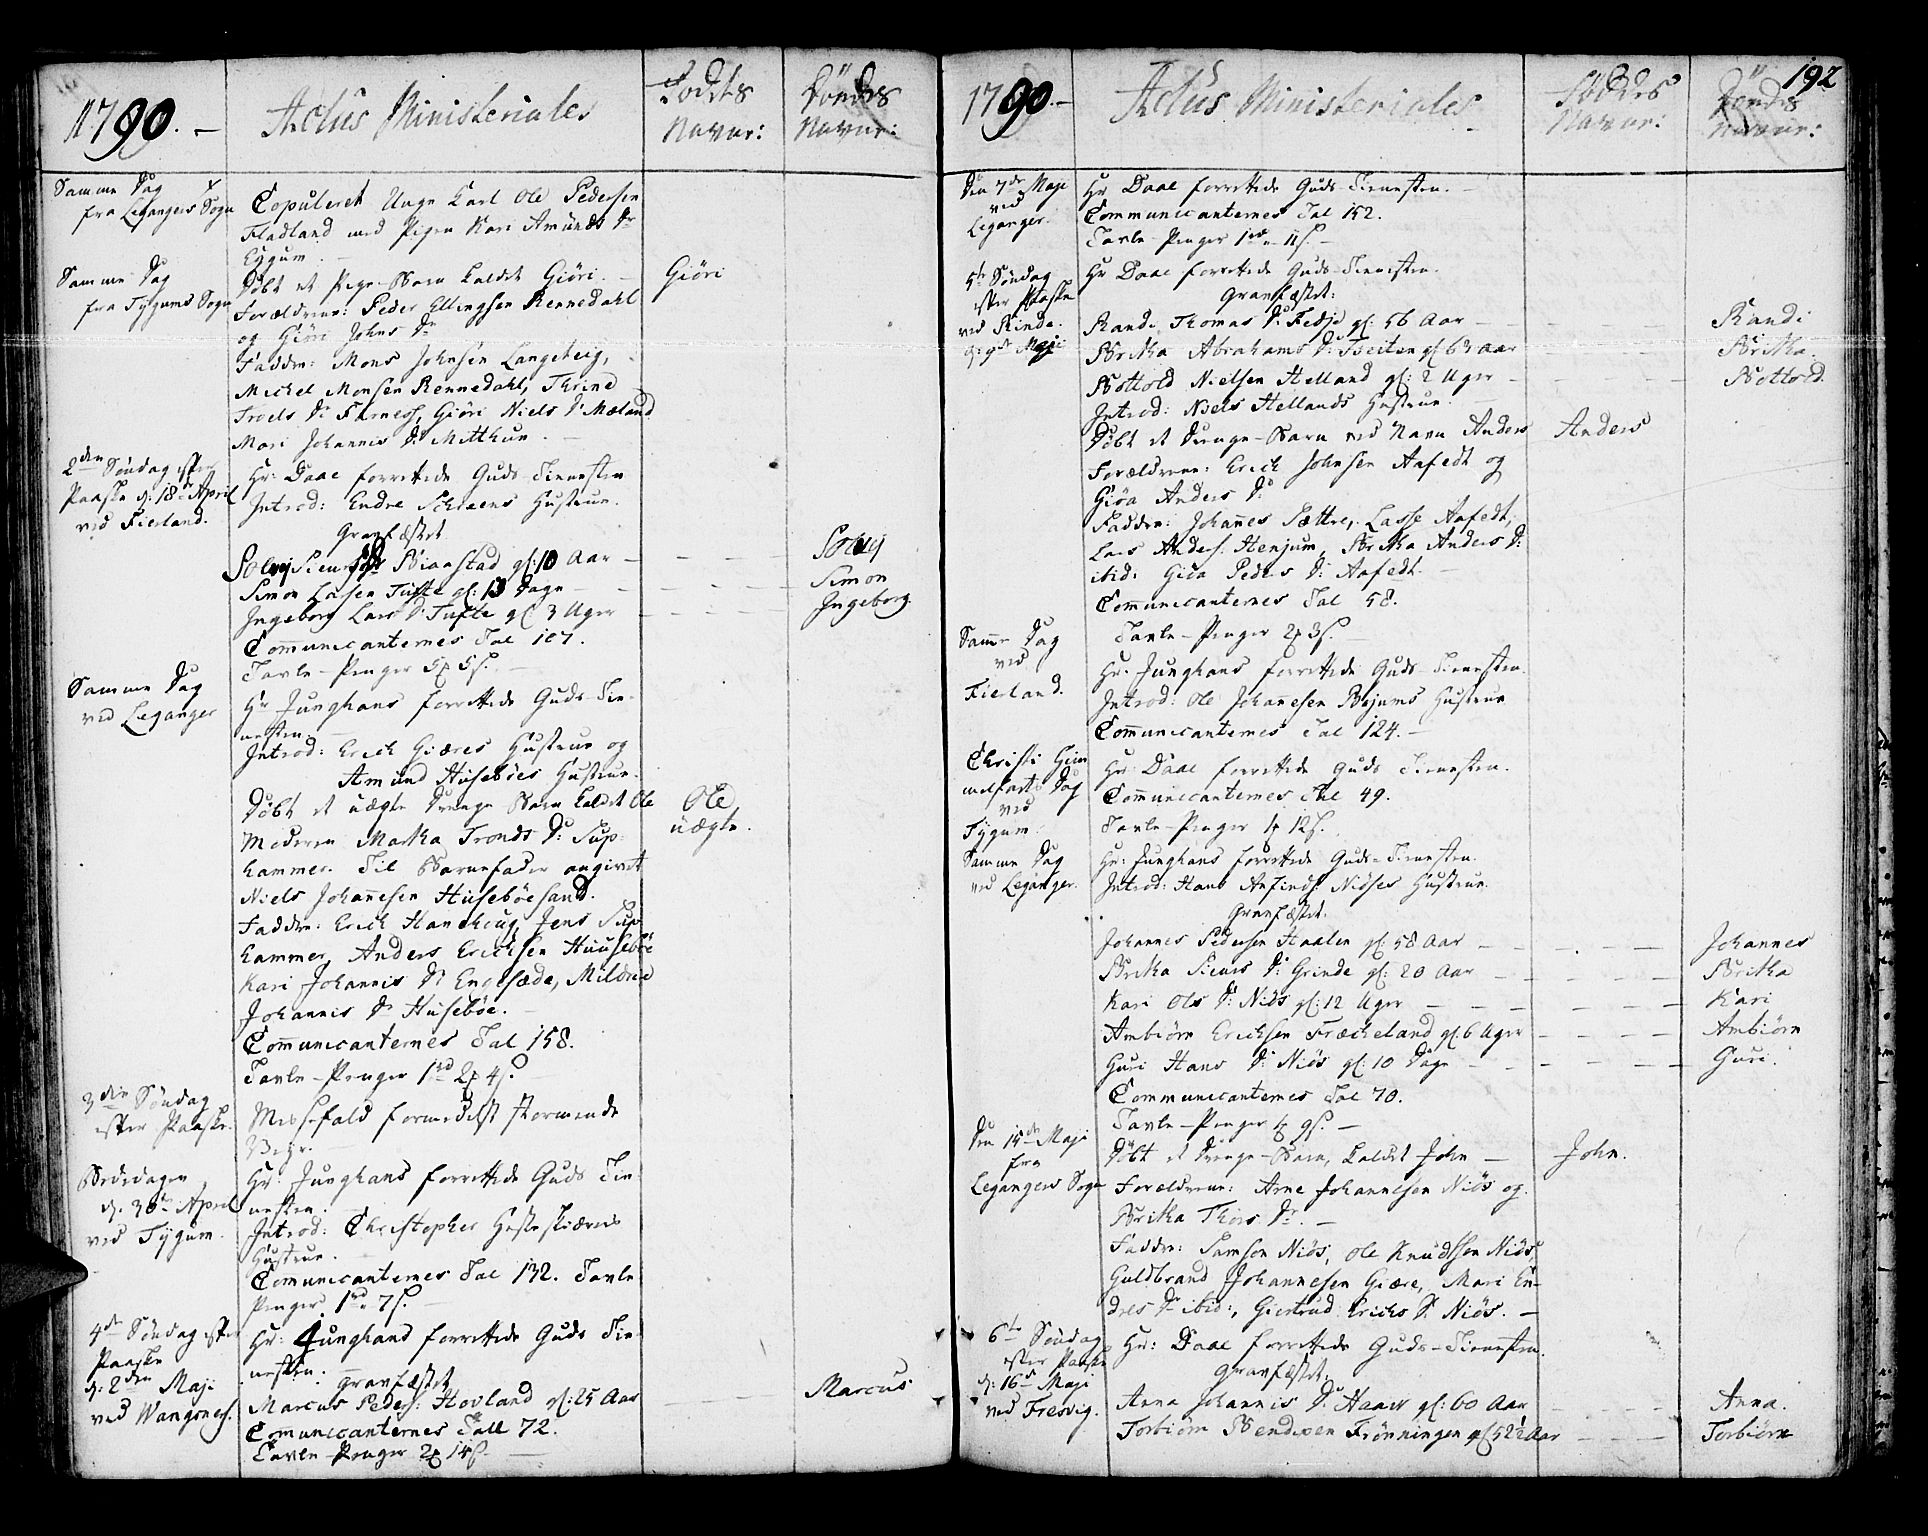 1790. — Actus Ministeriales Fødtes Navne: Dödes Navne:
Samme Dag
fra Legangers Sogn
Copuleret Unge Karl Ole Pedersen
Fladland med Pigen Kari Amunds Dr
Tygum.
Samme Dag
fra Tygums Sogn
Döbt et Pige-Barn kaldet Giöri. — Giöri
Forældrene: Peder Ellingsen Rennedahl
og Giöri Johns Dr
Faddre: Mons Johnsen Langeteig,
Michel Monsen Rennedahl, Thrine
Troels Dr Farness, Giöri Niels Dr Mæland
Mari Johannis Dr Mitthun. —
2den Söndag efter
Paaske d: 18de April
ved Fierland.
Hr: Daae forrettede Guds-Tienesten
Introd: Endre Schraens Hustrue.
Gravfæstet
Solvej Siurs Dr Biaastad gl: 10 Aar — Solvej
Simon Larsen Tufte gl: 13 Dage — Simon
Ingeborg Lars Dr Tufte gl: 3 Uger — Ingeborg
Communicanternes Tal 107.
Tavle-Penger 5 5s. —
Samme Dag
ved Leganger
Hr Junghans forrettede Guds-Tie-
nesten. —
Introd: Erich Giæres Hustrue og
Amund Huseböes Hustrue.
Döbt et uægte Drenge Barn kaldet Ole Ole,
uægte.
Moderen Martha Tronds Dr Sup-
hammer. Til Barnefader angivet
Niels Johannesen Huseböesand.
Faddre: Erich Hanehoug, Jens Sup-
hammer, Anders Erichsen Huuseböe
Kari Johannis Dr Engesæde, Mildrid
Johannis Dr Huseböe. —
Communicanternes Tal 158.
Tavle-Penger 1rd 2 4s.
3die Söndag
efter Paaske.
Messefald formedelst stormende
Vejr.
Bededagen
d. 30te April
ved Tygum.
Hr: Junghans forrettede Guds Tie-
nesten. —
Introd: Christopher Hesteskiærs
Hustrue.
Communicanternes Tal 132. Tavle
Penger 1rd 7s. —
4de Söndag efter
Paaske
d: 2den Maji
ved Wangsnes.
Hr: Junghans forrettede Guds Tie-
nesten. Gravfæstet
Marcus Peders: Hovland gl: 25 Aar — Marcus
Communicanternes Tall 72.
Tavle-Penger 2 14s. —
1790. — Actus Ministeriales Födtes Navne: Dödes Navne: 192
Den 7de Maji
ved
Leganger.
Hr Daae forrettede Guds-Tienesten. —
Communicanternes Tal 152.
Tavle-Penger 1rd 11s. —
5te Söndag
efter Paaske
ved Rinde.
d: 9de Maji
Hr Daae forrettede Guds-Tienesten.
Gravfæstet:
Randi Thomas Dr Fedje gl: 56 Aar — Randi
Britha Abrahams Dr Tveiten gl: 63 Aar — Britha.
Bottold Nielsen Helland gl: 2 Uger — Bottold.
Introd: Niels Hellands Hustrue. —
Döbt et Drenge-Barn ved Navn Anders Anders
Forældrene: Erich Johnsen Aafedt og
Giöa Anders Dr
Faddre: Johannes Sættre, Lasse Aafedt,
Lars Anders: Henjum, Britha Anders Dr
ibid: Giöa Peders Dr Aafedt. —
Communicanternes Tal 58.
Tavle-Penger 2 3s. —
Samme Dag
ved
Fierland.
Hr. Junghans forrettede Guds-Tienesten
Introd: Ole Johannesen Böjums Hustrue
Communicanternes Tal 124. —
Christi Him
melfarts Dag
ved
Tygum.
Hr: Daae forrettede Guds Tienesten.
Communicanternes Tal 49.
Tavle-Penger 4 12s.
Samme Dag
ved Leganger.
Hr: Junghans forrettede Guds-Tienesten.
Introd: Hans Anfinds: Niöses Hustrue.
Gravfæstet:
Johannes Pedersen Haalen gl: 58 Aar — Johannes
Britha Siurs Dr Grinde gl: 20 Aar — Britha
Kari Ols Dr Niös gl: 12 Uger — Kari
Ambiörn Erichsen Fræcheland gl: 6 Uger — Ambiörn
Guri Hans Dr Niös gl: 10 Dage — Guri.
Communicanternes Tal 70.
Tavle-Penger 4 9s. —
Den 15de Maji
fra
Legangers Sogn
Döbt et Drenge-Barn, kaldet John — John.
Forældrene: Arne Johannesen Niös og
Britha Thors Dr. —
Faddre: Samson Niös, Ole Knudsson Niös,
Guldbrand Johannesen Giære, Mari En-
dres Dr ibid:, Giertrud Erichs Dr Niös. —
6te Söndag
efter Paaske
d: 16de Maji
ved Fresvig.
Hr: Daae forrettede Guds-Tienesten.
Gravfæstet:
Anna Johannis Dr Haaw gl: 60 Aar — Anna.
Torbiörn Bendixen Frönningen gl: 52½ Aar — Torbiörn